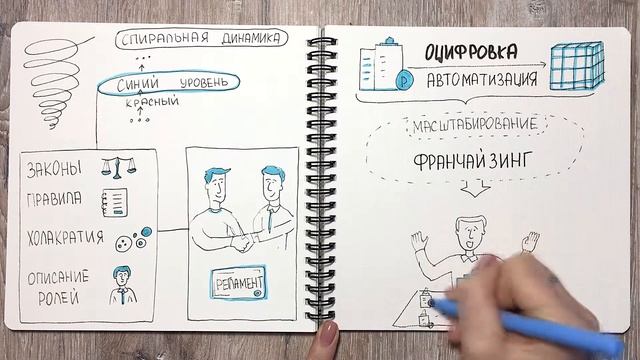 СПИРАЛЬНАЯ ДИНАМИКА
...
СИНИЙ УРОВЕНЬ
КРАСНЫЙ
...
ЗАКОНЫ
ПРАВИЛА
ХОЛАКРАТИЯ
ОПИСАНИЕ
РОЛЕЙ
РЕГЛАМЕНТ
ОЦИФРОВКА
АВТОМАТИЗАЦИЯ
МАСШТАБИРОВАНИЕ
ФРАНЧАЙЗИНГ